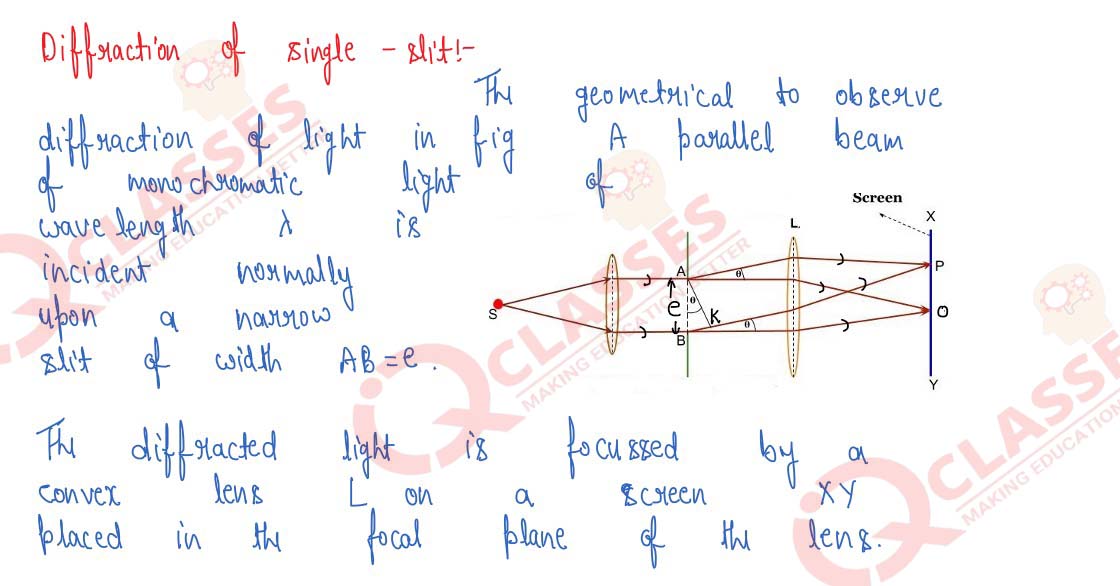 Diffraction of single - slit!-
The geometrical to observe
diffraction of light in fig A parallel beam
of monochromatic light of
wave length λ is
incident normally
upon a narrow
slit of width AB = e.
Screen
X
L
P
A
θ
S
e
θ
K
O
B
θ
Y
The diffracted light is focussed by a
convex lens L on a screen XY
placed in the focal plane of the lens.
QCLASSES
MAKING EDUCATION BETTER
QCLASSES
MAKING EDUCATION BETTER
QCLASSES
MAKING EDUCATION